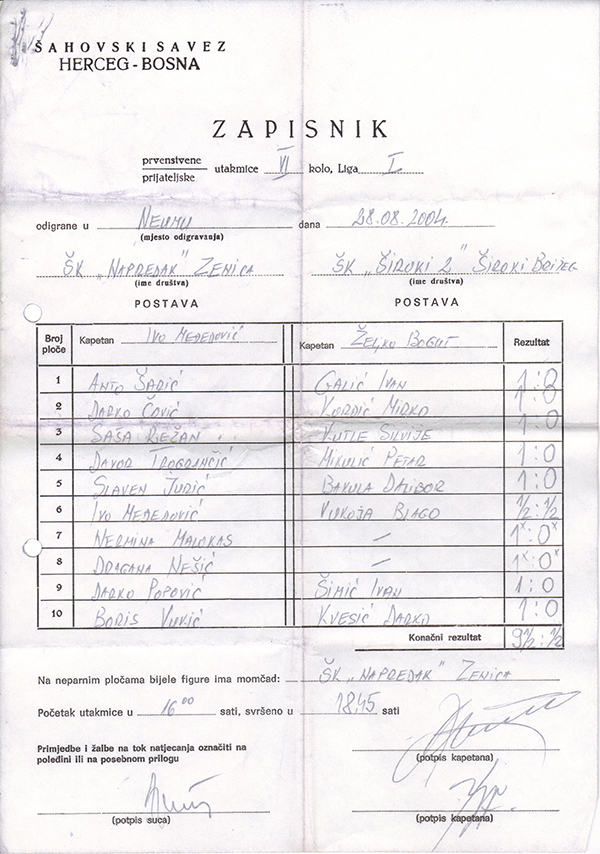 ŠAHOVSKI SAVEZ
HERCEG-BOSNA
ZAPISNIK
prvenstvene
prijateljske utakmice VI kolo, Liga I
odigrane u NEUMU dana 28.08.2004.
(mjesto odigravanja)
ŠK „NAPREDAK" ZENICA ŠK „ŠIROKI 2" ŠIROKI BRIJEG
(ime društva) (ime društva)
POSTAVA POSTAVA
Broj ploče Kapetan IVO MEĐEDOVIĆ Kapetan ŽELJKO BOGUT Rezultat
1 ANTO ŠARIĆ GALIĆ IVAN 1:0
2 DARKO ČOVIĆ KORDIĆ MIRKO 1:0
3 SAŠA RJEŽAN KUTLE SILVIJE 1:0
4 DAVOR TROGRANČIĆ MIKULIĆ PETAR 1:0
5 SLAVEN JURIĆ BAKULA DALIBOR 1:0
6 IVO MEĐEDOVIĆ VUKOJA BLAGO 1/2:1/2
7 NERMINA MALOKAS — 1x:0x
8 DRAGANA NEŠIĆ — 1x:0x
9 DARKO POPOVIĆ ŠIMIĆ IVAN 1:0
10 BORIS VUKIĆ KVESIĆ DARKO 1:0
Konačni rezultat 9 1/2:1/2
Na neparnim pločama bijele figure ima momčad: ŠK „NAPREDAK" ZENICA
Početak utakmice u 16 00 sati, svršeno u 18,45 sati
(potpis kapetana)
Primjedbe i žalbe na tok natjecanja označiti na
poleđini ili na posebnom prilogu
(potpis suca) (potpis kapetana)